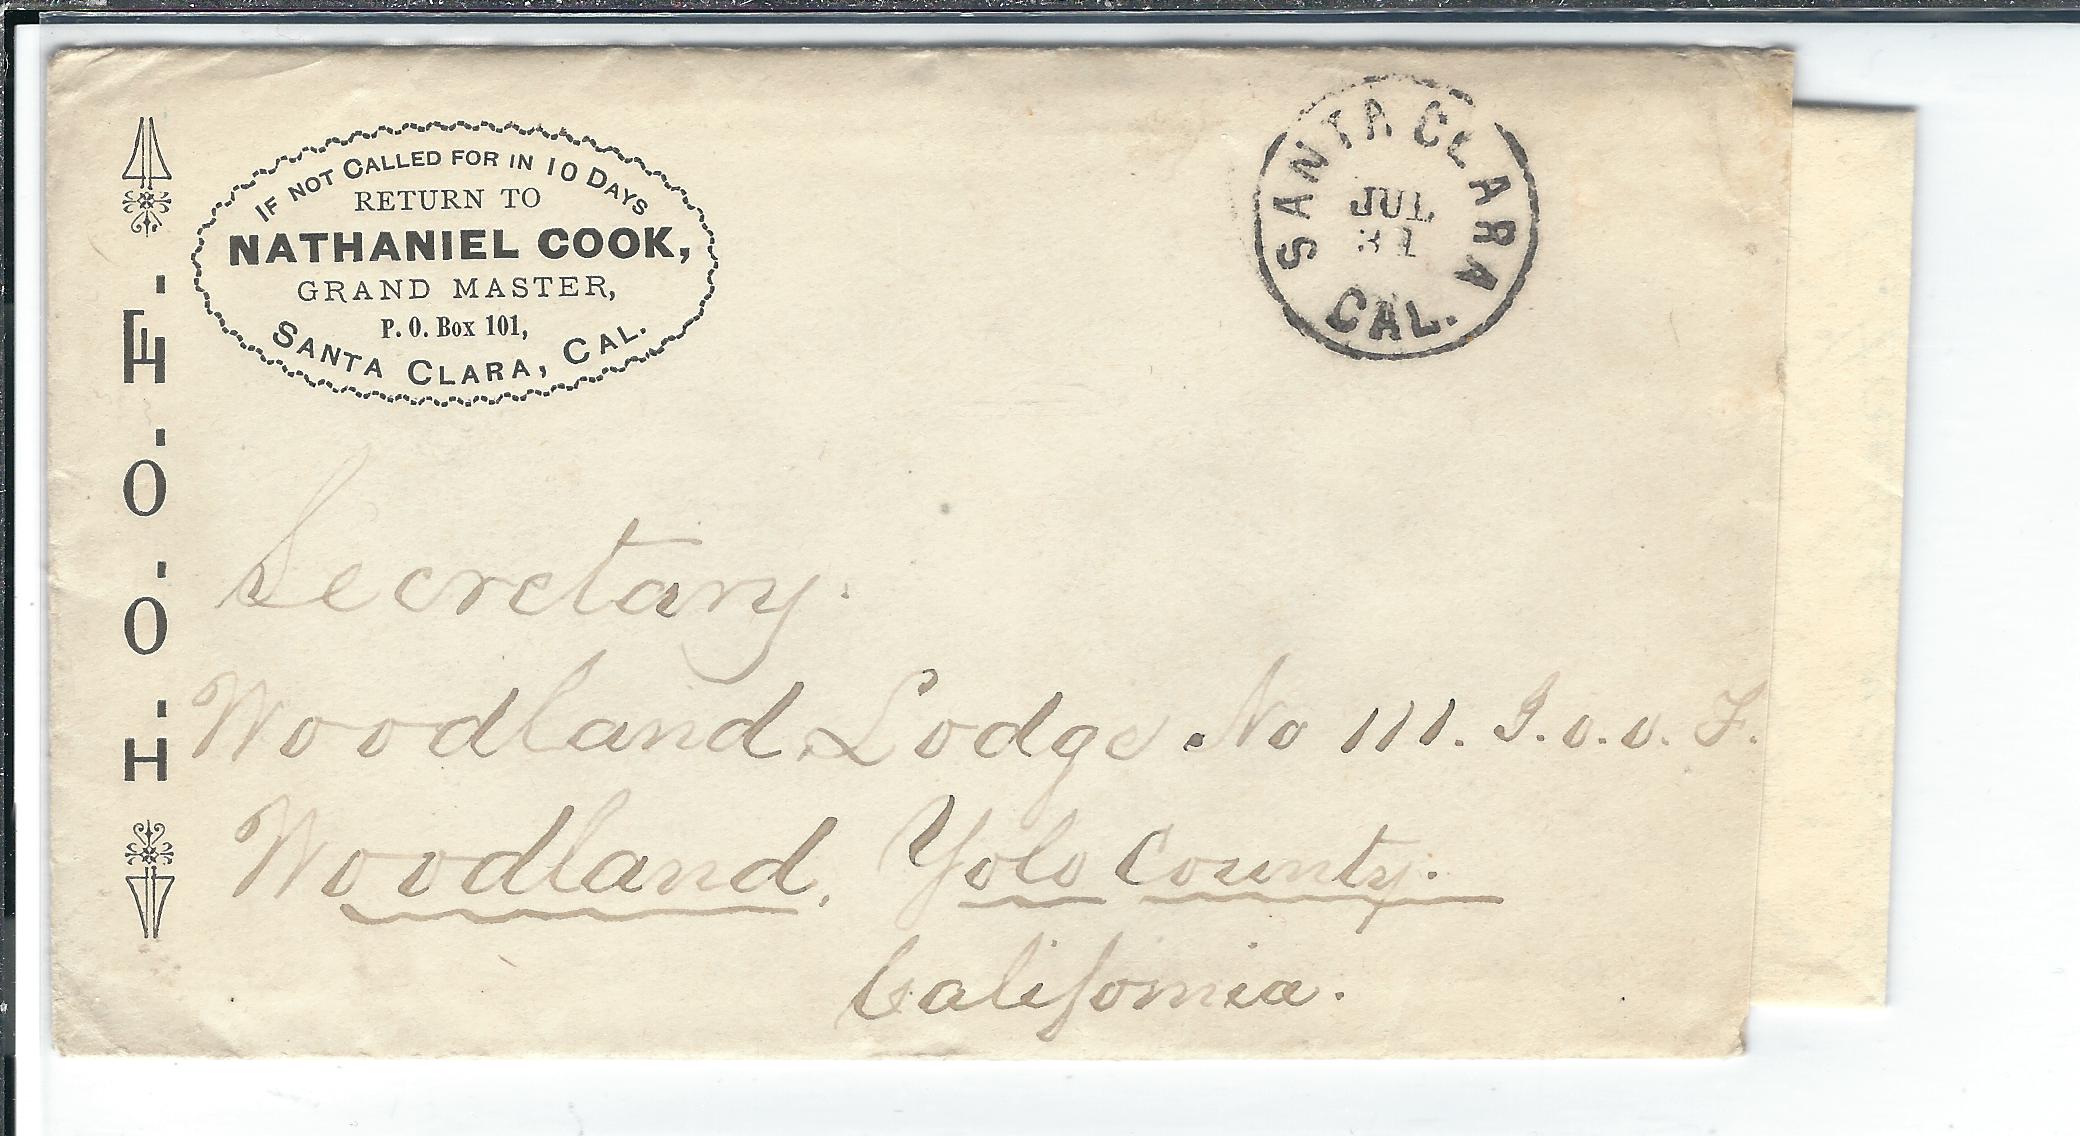 IF NOT CALLED FOR IN 10 DAYS
RETURN TO
NATHANIEL COOK,
GRAND MASTER,
P. O. Box 101,
SANTA CLARA, CAL.
I.O.O.F.
SANTA CLARA
JUL
31
CAL.
Secretary.
Woodland Lodge No 111. I.O.O.F.
Woodland, Yolo County.
California.